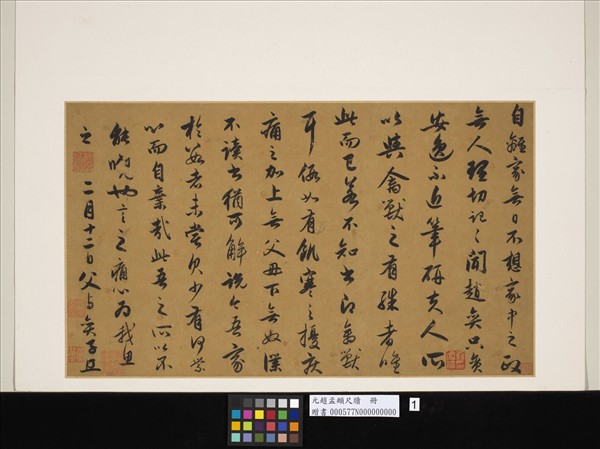 自離家無日不想家中之政
無人理切記々聞趙奕只
安逸不近筆研夫人所
以與禽獸之有殊者唯
此而已若不知書即禽獸
耳假如有飢寒之擾疾
痛之加上無父母下無奴僕
不讀書猶可解說今吾家
於數者未嘗欠少有何
而自棄哉此吾之所以不
能也言之痛心為我思
之 二月十二日父与奕子
元趙孟頫尺牘 冊
贈書 000577N000000000
1